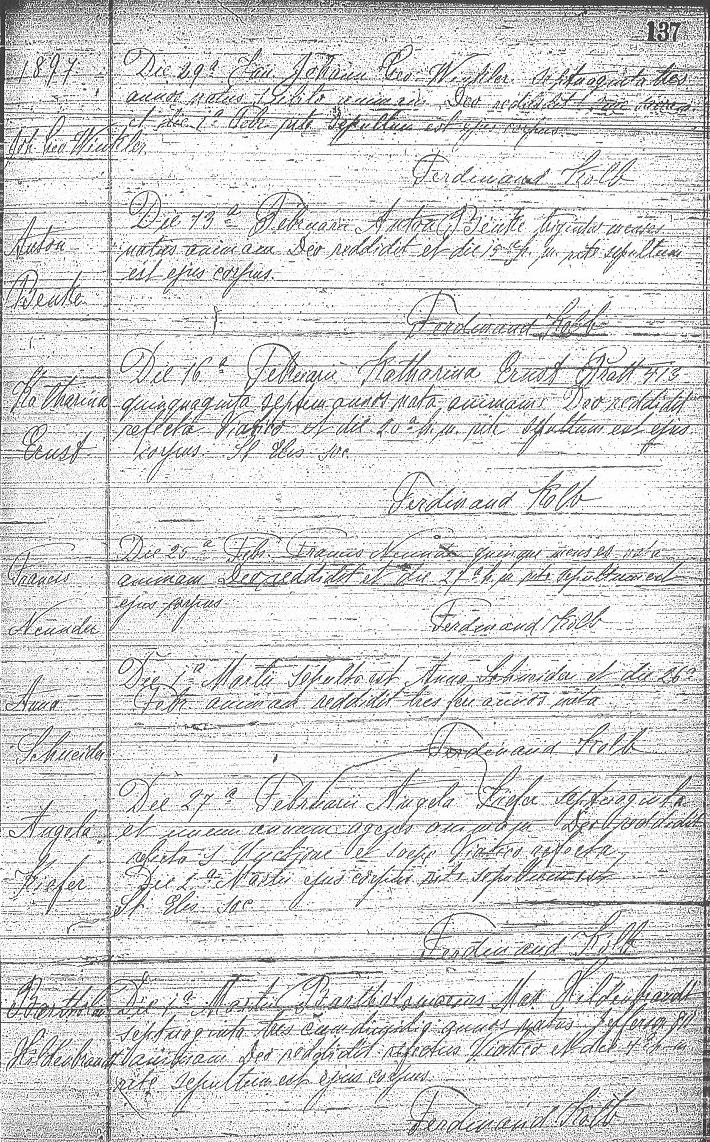 137
1897.
Die 29ª Jan Johann Leo Winkler septuaginta tres
annos natus subito animam Deo reddidit
et die 1ª Febr. rite sepultum est ejus corpus.
Joh. Leo Winkler.
Ferdinand Kolb
Die 13ª Februarii Anton Benke menses
natus animam Deo reddidit et die 15ª h. m. rite sepultum
est ejus corpus.
Anton
Benke
Ferdinand Kolb
Die 16ª Februarii Katharina Ernst 413
quinquaginta septem annos nata animam Deo reddidit
refecta Viatico et die 20ª h. m. rite sepultum est ejus
corpus. St Elis soc.
Katharina
Ernst
Ferdinand Kolb
Die 25ª Febr. Francis quinque menses nata
animam Deo reddidit et die 27ª h. m. rite sepultum est
ejus corpus
Francis
Ferdinand Kolb
Die 1ª Martii sepulta est Anna Schneider et die 26ª
Febr. animam reddidit tres annos nata
Anna
Schneider
Ferdinand Kolb
Die 27ª Februarii Angela Kiefer septuaginta
et unum annum agens animam Deo reddidit
refecta et saepe Viatico refecta
Die 2ª Martii ejus corpus rite sepultum est
St Elis Soc
Angela
Kiefer
Ferdinand Kolb
Die 1ª Martii Bartholomaeus Max Hildenbrandt
septuaginta tres annos natus
animam Deo reddidit refectus Viatico et die 4ª h. m
rite sepultum est ejus corpus.
Barthol
Hildenbrandt
Ferdinand Kolb